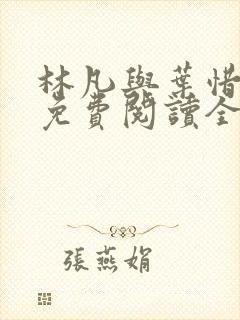 林凡與葉惜
免費閱讀全
張燕娟